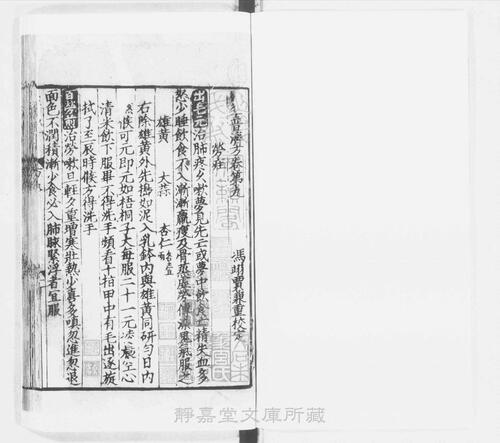 善濟方卷第五
馮翊賈兼重校定
勞疰
出毛元治肺疾久嗽夢見先亡或夢中飲食亡精失血多
愁少睡飲食不入漸漸羸瘦及骨蒸虛勞傳疰鬼氣服之
雄黃 大蒜 杏仁
右除雄黃外先搗如泥入乳鉢內與雄黃同研勻日內
候可元即元如梧桐子大每服二十一元凌晨空心
清米飲下服畢不得洗手頻看十指甲中有毛出逐旋
拭了至辰時後方得洗手
治勞嗽旦輕夕重增寒壯熱少喜多嗔忽進忽退
面色不潤積漸少食必入肺脉緊浮者宜服
靜嘉堂文庫所藏